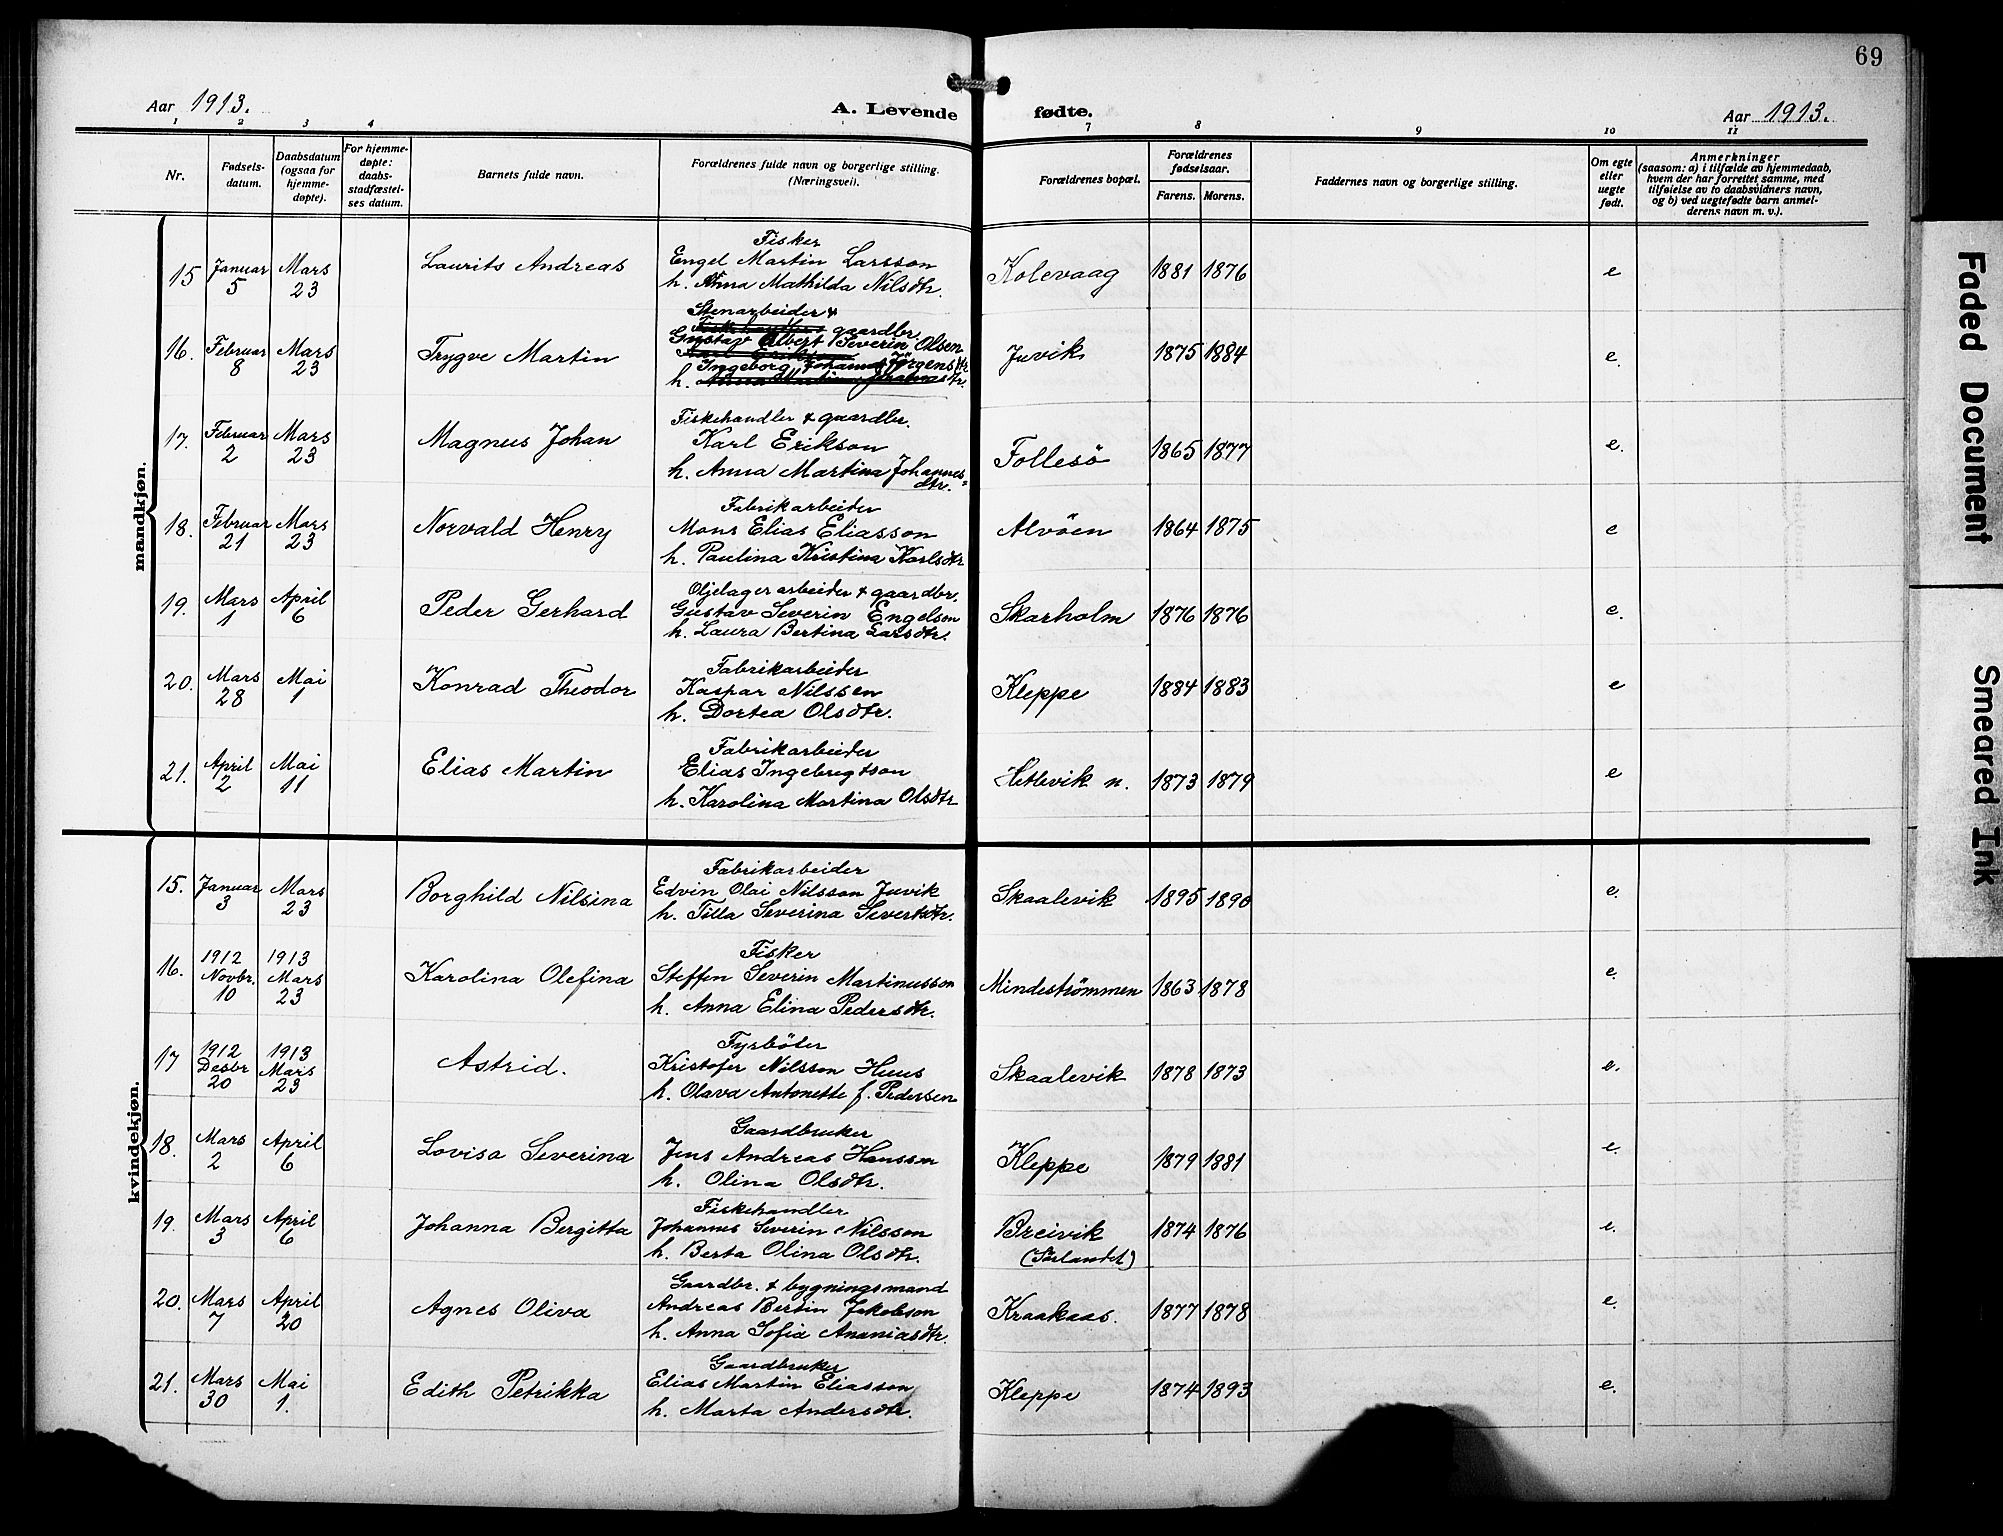 69
Aar 1913. A. Levende fødte. Aar 1913.
1 2 3 4 7 8 9 10 11
Nr. Fødsels-datum. Daabsdatum (ogsaa for hjemme-døpte). For hjemme-døpte: daabs-stadfæstel-ses datum. Barnets fulde navn. Forældrenes fulde navn og borgerlige stilling. (Næringsvei). Forældrenes bopæl. Forældrenes fødselsaar. Farens. Morens. Faddernes navn og borgerlige stilling. Om egte eller uegte født. Anmerkninger (saasom: a) i tilfælde av hjemmedaab, hvem der har forrettet samme, med tilføielse av to daabsvidners navn, og b) ved uegtefødte barn anmel-derens navn m. v.).
mandkjøn.
Fisker
15 Januar 5 Mars 23 Laurits Andreas Engel Martin Larsson Kolevaag 1881 1876 e
h. Anna Mathilda Nilsdtr.
Stenarbeider &
gaardbr.
Gustav Albert Severin Olsen
16. Februar 8 Mars 23 Trygve Martin Juvik 1875 1884 e.
Ingeborg Johanna Jörgensdtr
h.
Fiskehandler & gaardbr.
17. Februar 2 Mars 23 Magnus Johan Karl Erikson Follesö 1865 1877 e.
h. Anna Martina Johannes=
dtr.
Fabrikarbeider
18. Februar 21 Mars 23 Norvald Henry Mons Elias Eliasson Alvöen 1864 1875 e
h. Paulina Kristina Karlsdtr
Oljelagerarbeider & gaardbr.
19. Mars 1 April 6 Peder Gerhard Gustav Severin Engelson Skarholm 1876 1876 e.
h. Laura Bertina Larsdtr.
Fabrikarbeider
20. Mars 28 Mai 1 Konrad Theodor Kaspar Nilssen Kleppe 1884 1883 e
h. Dortea Olsdtr.
Fabrikarbeider
21. April 2 Mai 11 Elias Martin Elias Ingebrigtson Hetlevik n. 1873 1879 e
h. Karolina Martina Olsdtr
kvindekjøn.
Fabrikarbeider
15. Januar 3 Mars 23 Borghild Nilsina Edvin Olai Nilsson Juvik Skaalevik 1895 1890 e.
h. Tilla Severina Severtsdtr.
Fisker
16. 1912 Novbr. 10 1913 Mars 23 Karolina Olefina Steffen Severin Martinusson Mindeströmmen 1863 1878 e.
h. Anna Elina Pedersdtr.
Fyrböter
17 1912 Desbr 20 1913 Mars 23 Astrid. Kristofer Nilsson Huus Skaalevik 1878 1873 e.
h. Olava Antonette f. Pedersen
Gaardbruker
18. Mars 2 April 6 Lovisa Severina Jens Andreas Hanssen Kleppe 1879 1881 e.
h. Olina Olsdtr.
Fiskehandler
19. Mars 3 April 6 Johanna Bergitta Johannes Severin Nilsson Breivik 1874 1876 e.
h. Berta Olina Olsdtr. (Sörlandet)
Gaardbr. & bygningsmand
20. Mars 7 April 20 Agnes Oliva Andreas Bertin Jakobson Kraakaas. 1877 1878 e.
h. Anna Sofia Ananiasdtr.
Gaardbruker
21. Mars 30 Mai 1. Edith Petrikka Elias Martin Eliasson Kleppe 1874 1893 e.
h. Marta Andersdtr.
Faded Document
Smeared Ink